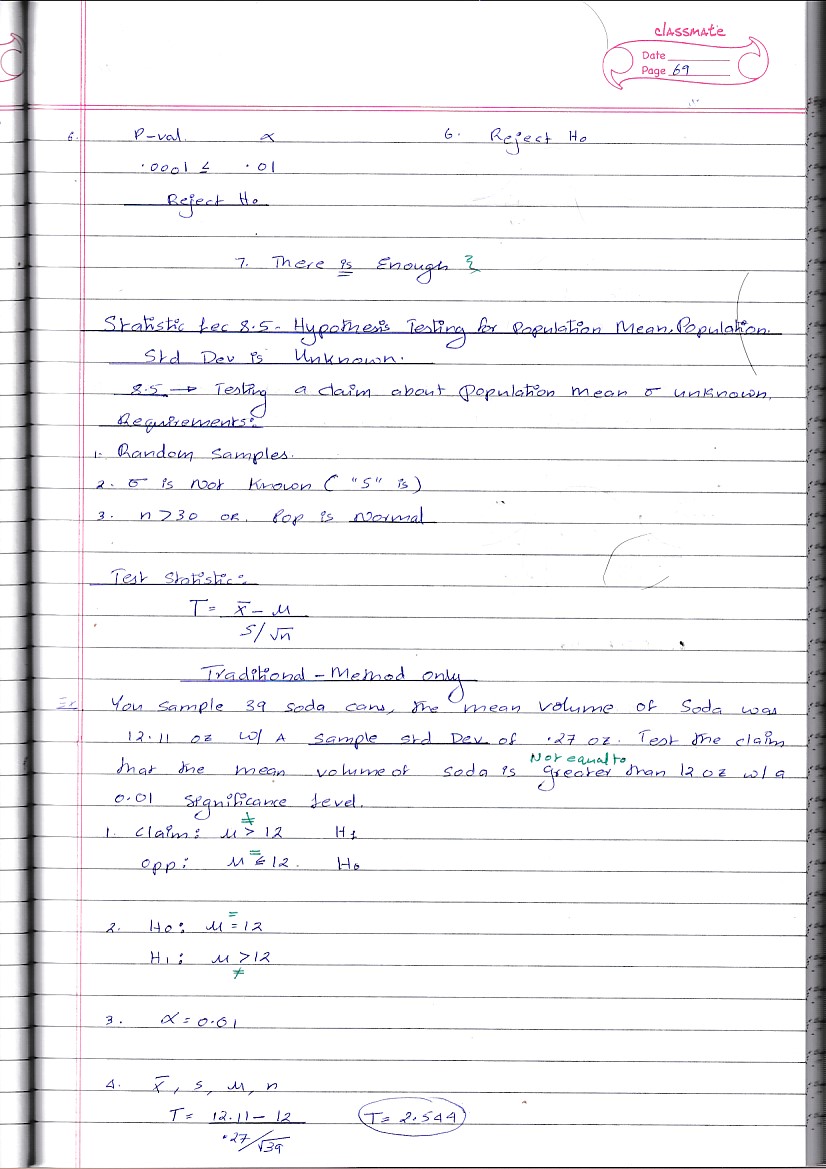 classmate
Date
Page 69
6. P-val. α 6. Reject H₀
.0001 ≤ .01
Reject H₀
7. There is Enough
Statistic Lec 8.5 - Hypothesis Testing for Population Mean, Population
Std Dev is Unknown.
8.5 → Testing a claim about population mean σ unknown.
Requirements:
1. Random Samples.
2. σ is Not Known ( "S" is )
3. n > 30 OR Pop is Normal
Test Statistic:
T = x̄ - μ
S/√n
Traditional - Method only
Ex You sample 39 soda cans, the mean volume of Soda was
12.11 oz w/ A sample std Dev of .27 oz. Test the claim
Not equal to
that the mean volume of soda is greater than 12 oz w/ a
0.01 significance level.
≠
1. Claim: μ > 12 H₁
=
Opp: μ ≤ 12. H₀
=
2. H₀: μ = 12
H₁: μ > 12
≠
3. α = 0.01
4. x̄, s, μ, n
T = 12.11 - 12 T = 2.544
.27/√39